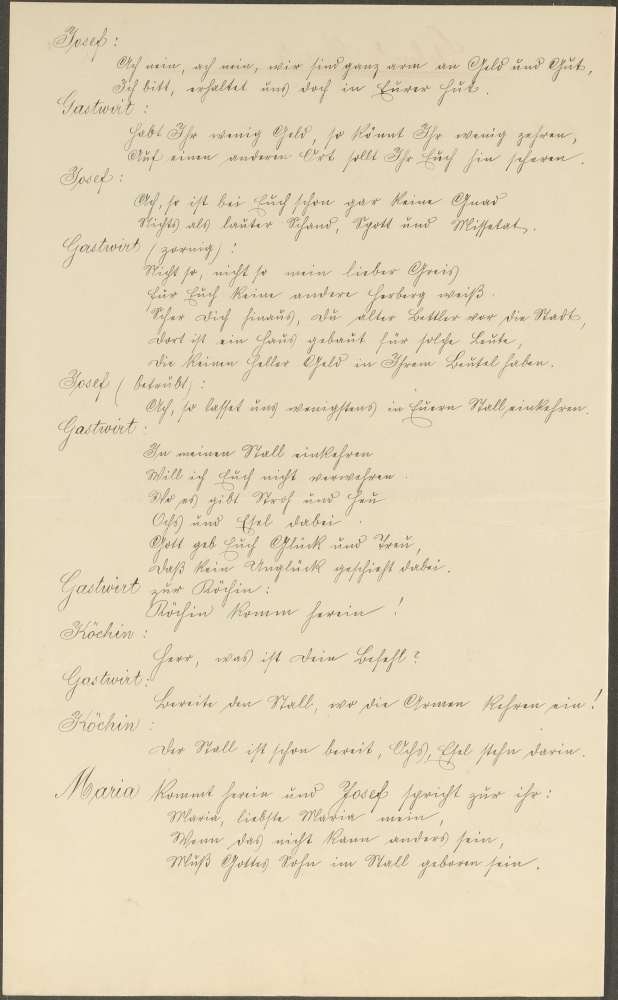 Josef:
Ach nein, ach nein, wir sind ganz arm an Geld und Gut,
Ich bitt, erhaltet uns doch in Eurer Hut.
Gastwirt:
Habt Ihr wenig Geld, so könnt Ihr wenig zehren,
Auf einen anderen Ort sollt Ihr Euch hin scheren.
Josef:
Ach, so ist bei Euch schon gar keine Gnad
Nichts als lauter Schand, Spott und Missetat.
Gastwirt (zornig):
Nicht so, nicht so mein lieber Greis
Für Euch keine andere Herberg weiß.
Scher Dich hinaus, Du alter Bettler vor die Stadt,
Dort ist ein Haus gebaut für solche Leute,
Die keinen Heller Geld in Ihrem Beutel haben.
Josef (betrübt):
Ach, so lasset uns wenigstens in Euern Stall einkehren.
Gastwirt:
In meinen Stall einkehren
Will ich Euch nicht verwehren.
Wo es gibt Stroh und Heu
Ochs und Esel dabei.
Gott geb Euch Glück und Treu,
Daß kein Unglück geschieht dabei.
Gastwirt zur Köchin:
Köchin komm herein!
Köchin:
Herr, was ist Dein Befehl?
Gastwirt:
Bereite den Stall, wo die Armen kehren ein!
Köchin:
Der Stall ist schon bereit, Ochs, Esel stehn darin.
Maria kommt herein und Josef spricht zur ihr:
Maria, liebste Maria mein,
Wenn das nicht kann anders sein,
Muß Gottes Sohn im Stall geboren sein.